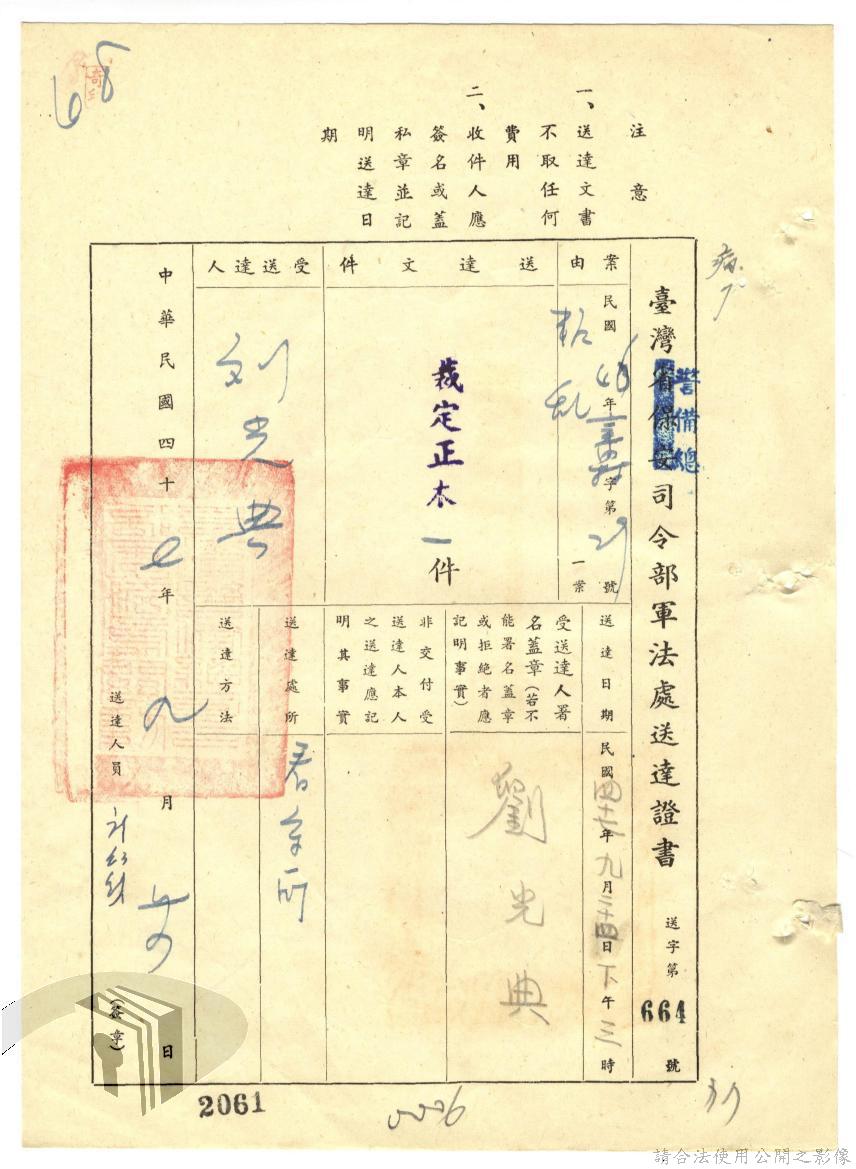 注意
一、送達文書
不取任何
費用
二、收件人應
簽名或蓋
私章並記
明送達日
期
臺灣省保安司令部軍法處送達證書
警備總
送字第664號
案由
民國46年字第號一案
叛乱
送達文件
裁定正本一件
受送達人
刘光典
送達日期
民國四十七年九月二十四日下午三時
受送達人署
名蓋章(若不
能署名蓋章
或拒絕者應
記明事實)
劉光典
非交付受
送達人本人
之送達應記
明其事實
送達處所
看守所
送達方法
中華民國四十七年九月日
送達人員
(簽章)
68
病
2061
0026
37
請合法使用公開之影像